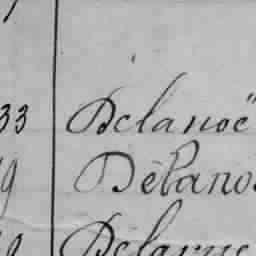 33 Delanoë
9 Délano
Delarue